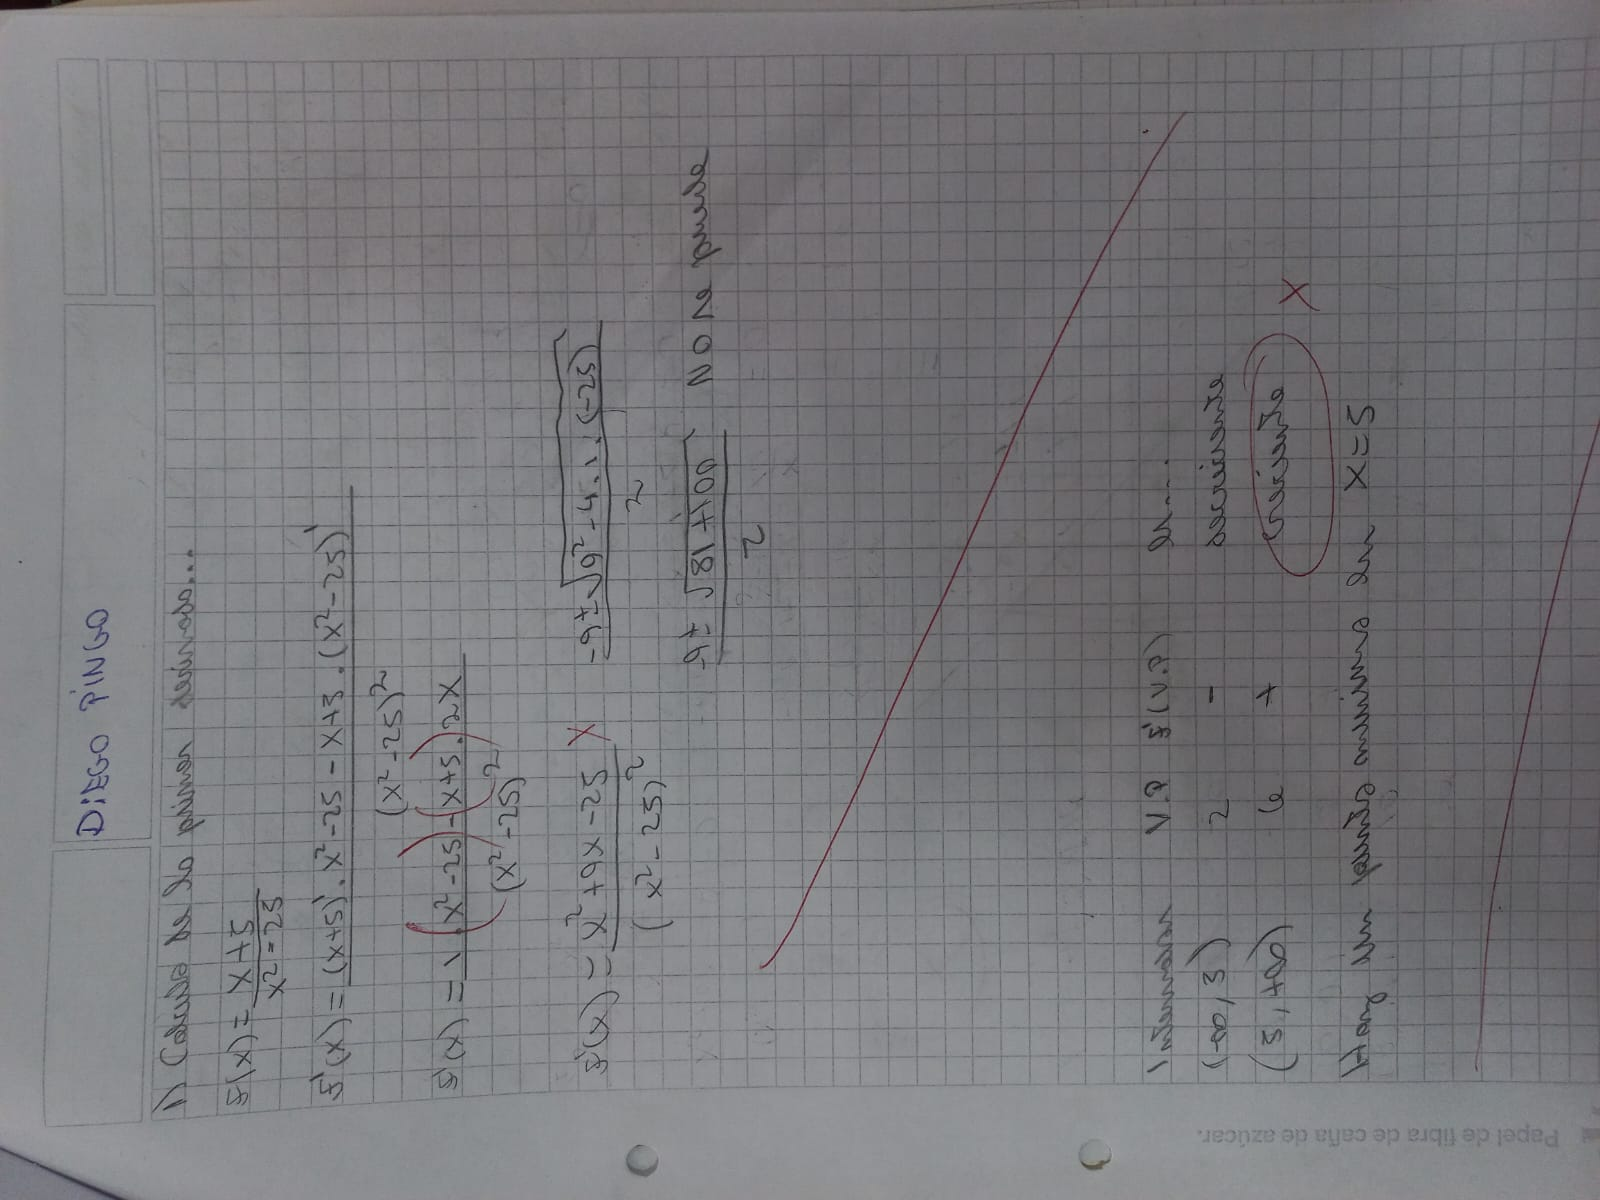 DIEGO PINGO
1) Calculo de la primer derivada...
f(x) = x+5 / x² = 25
f'(x) = (x+5)' . x² - 25 - x+3 . (x² - 25)' / (x² - 25)²
f'(x) = 1 . (x² - 25) - (x+5) . 2x / (x² - 25)²
f'(x) = x² + 9x - 25 / (x² - 25)² X
-9 ± √9² - 4 . 1 . (-25) / 2
-9 ± √81 + 100 / 2 No se puede
Intervalos V.P f'(V.P) es...
(-∞, 3) 2 - decreciente
(5, +∞) 6 + creciente X
Hay un punto mínimo en x = 5
Papel de fibra de caña de azúcar.